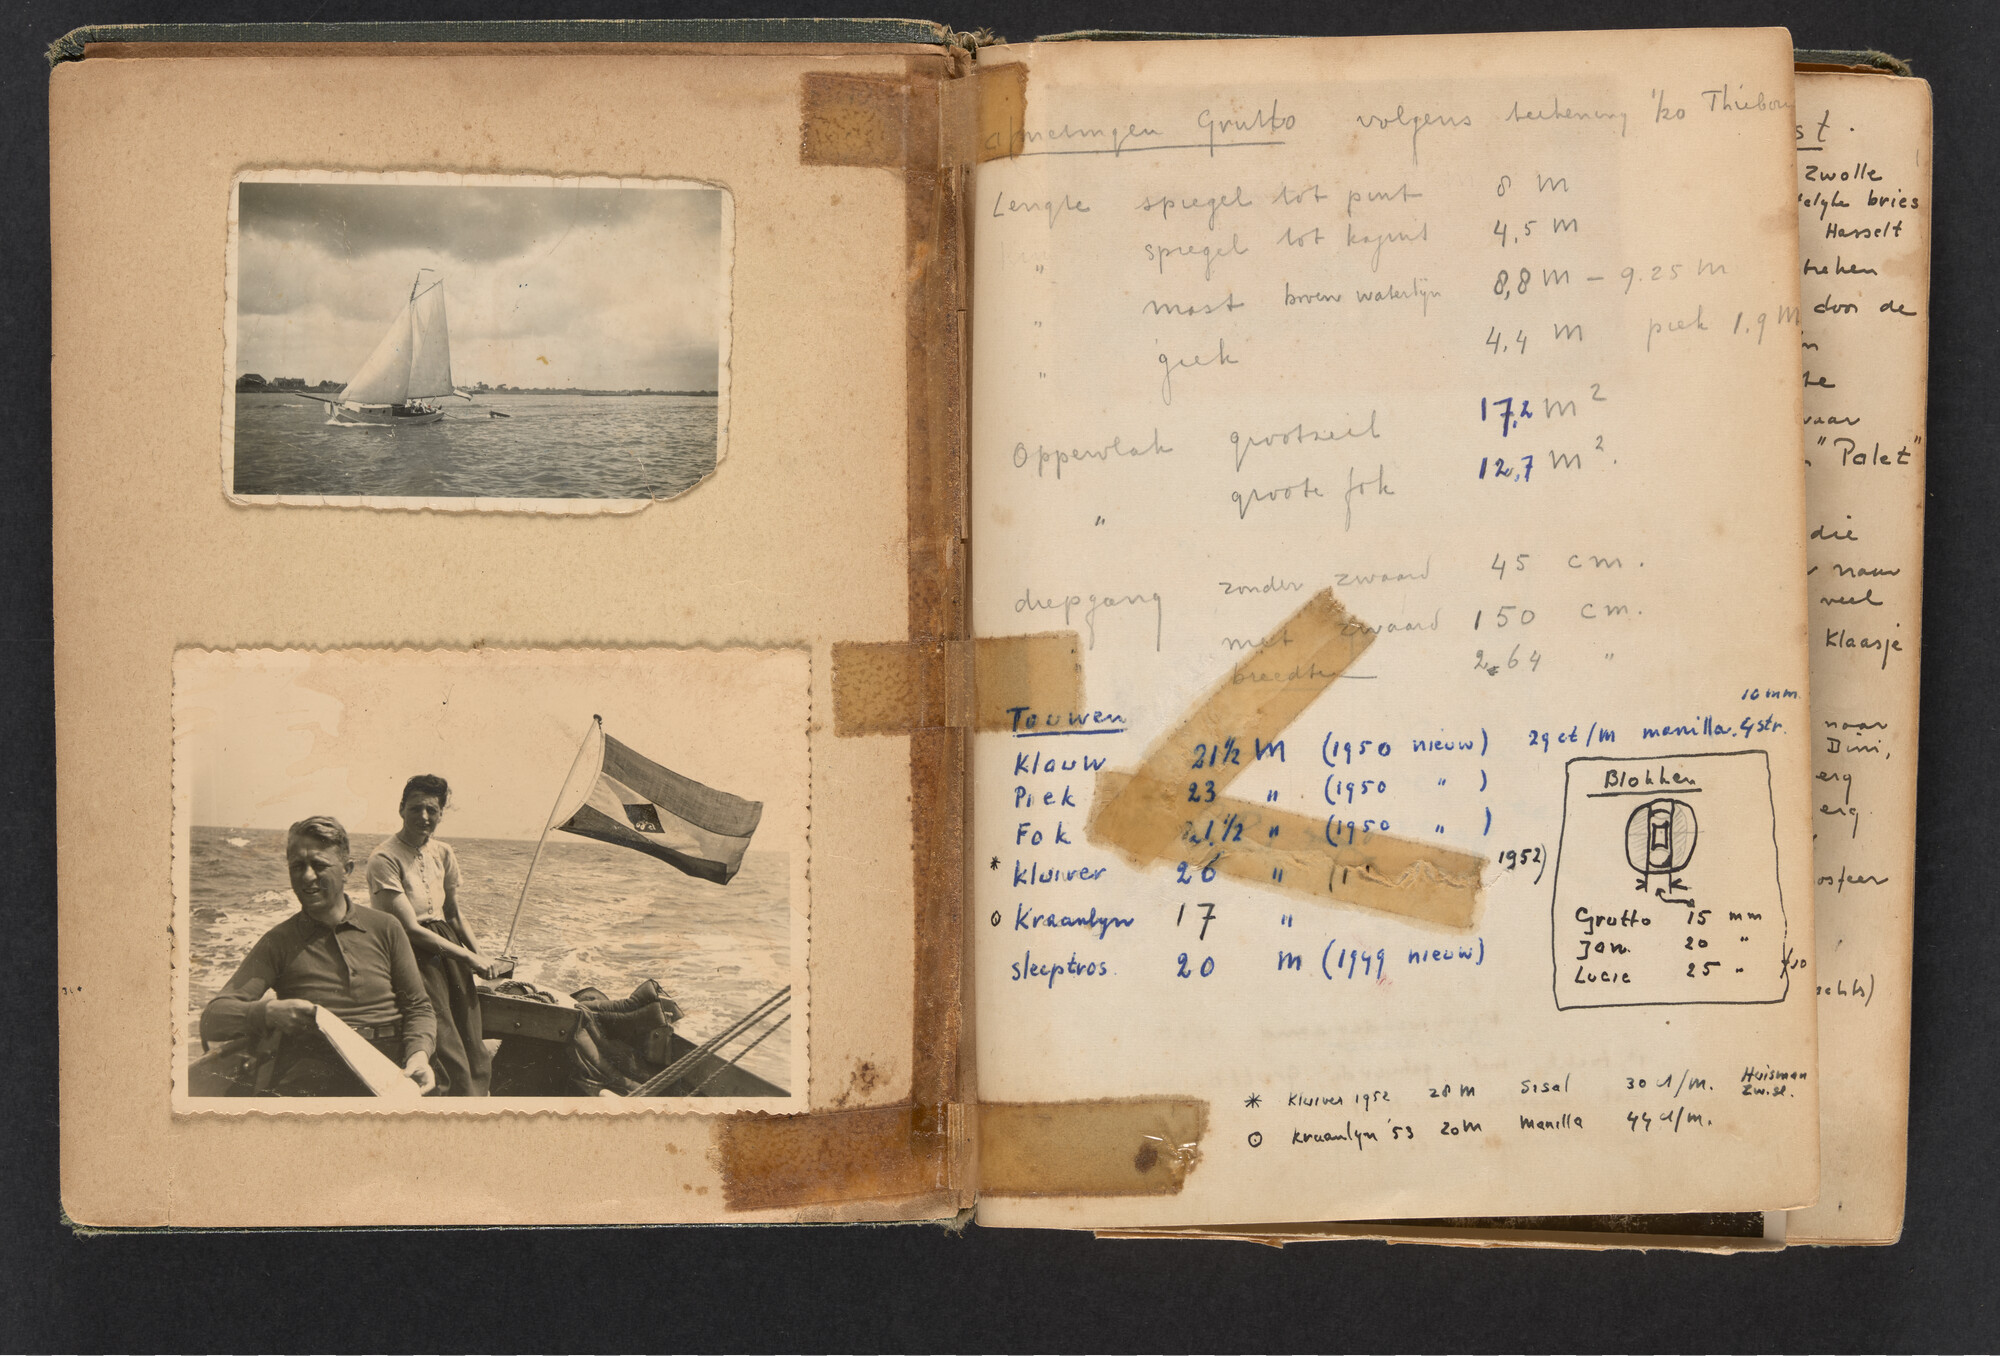 afmetingen Grutto volgens teekening 1/20
Lengte spiegel tot punt 8 M
" spiegel tot kajuit 4,5 M
" mast boven waterlijn 8,8 M – 9.25 M
" giek 4,4 M piek 1,9 M
Oppervlak grootzeil 17,2 M²
" groote fok 12,7 M².
diepgang zonder zwaard 45 cm.
met zwaard 150 cm.
breedte 2.64 "
10 mm.
Touwen
Klauw 21½ M (1950 nieuw) 29 ct/M manilla. 4 str.
Piek 23 " (1950 " )
Fok 21½ " (1950 " )
* kluiver 26 " 1952)
o Kraanlyn 17 "
sleeptros. 20 M (1949 nieuw)
Blokken
Grutto 15 mm
Jan. 20 "
Lucie 25 "
* kluiver 1952 28 M Sisal 30 ct/M. Huisman
Zw.sl.
o kraanlyn '53 20M Manilla 44 ct/M.
st.
Zwolle
bries
Hasselt
door de
"Palet"
die
naar
veel
Klaasje
naar
Dini,
erg
erg